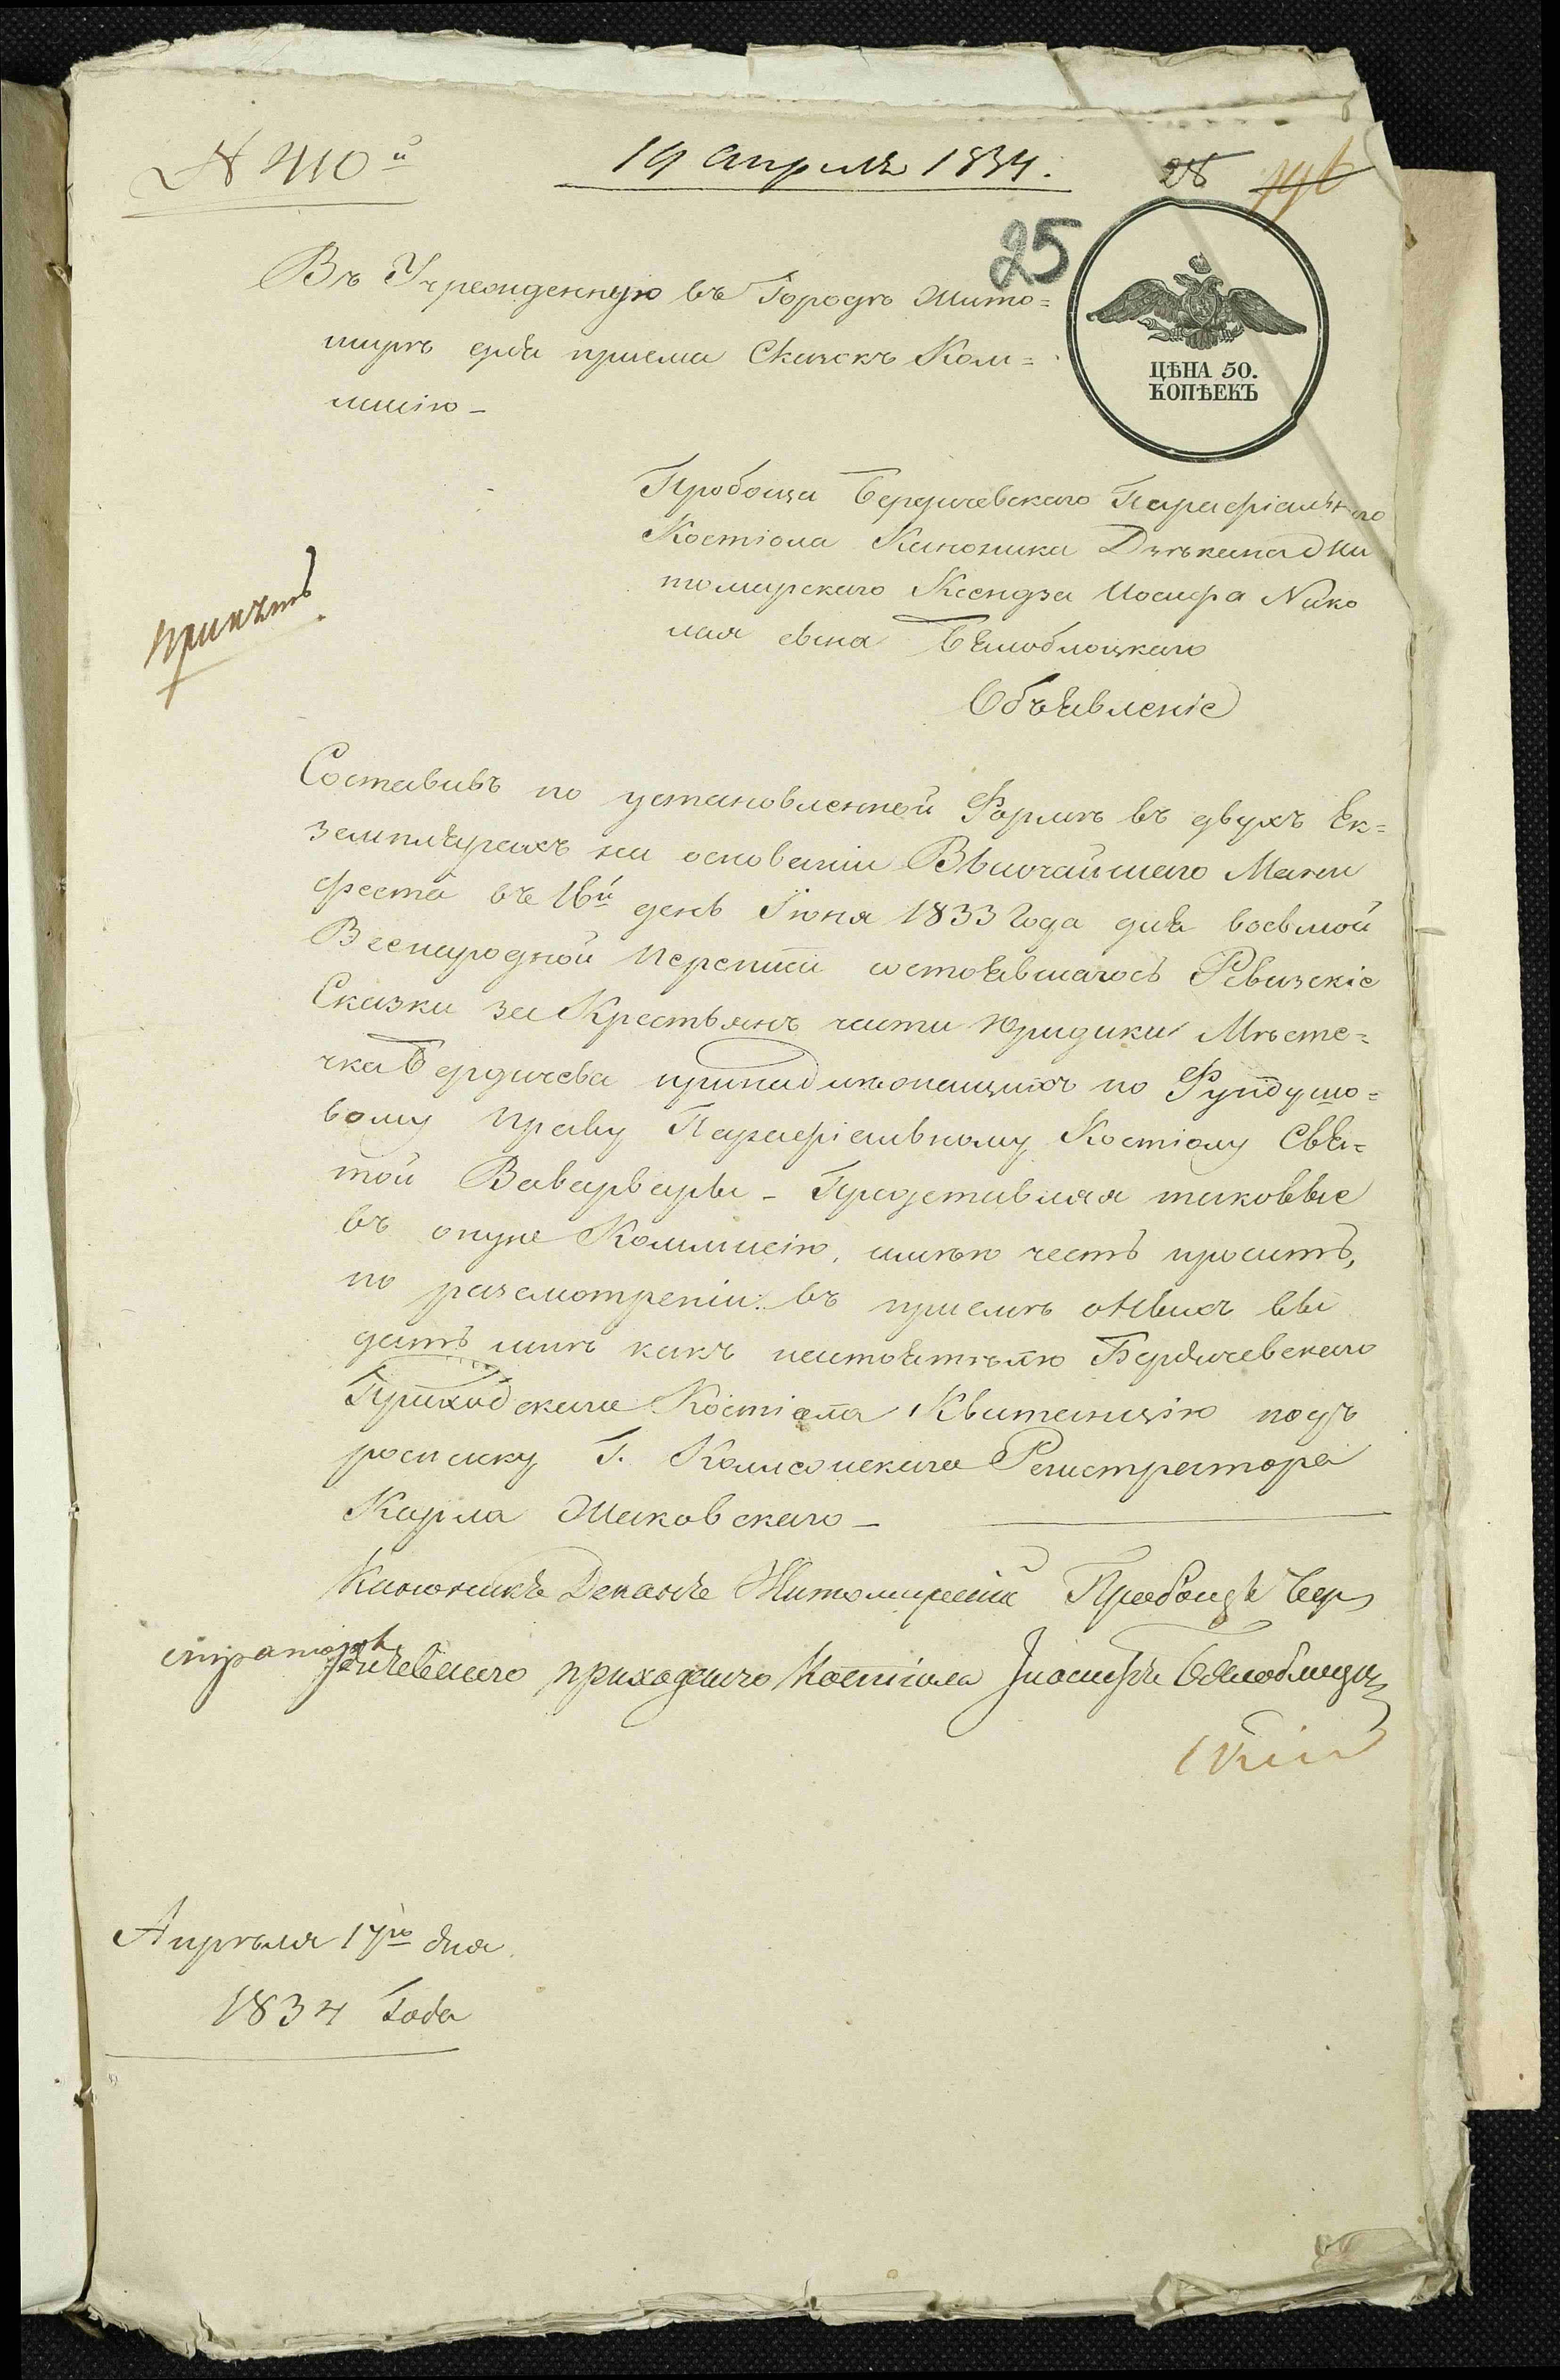 N 410й
19 Апреля 1834.
28
25
ЦѢНА 50.
КОПѢЕКЪ
Въ Учрежденную въ Городѣ Жито=
мирѣ для приема Сказокъ Ком=
мисію –
Пробоща Бердичевскаго Парафіальнаго
Костіола Каноника Дѣкана Жи
томирскаго Ксендза Иосифа Нико
лая сына Бѣлоблоцкаго
принять
Объявленіе
Составивъ по установленной Формѣ въ двухъ Ек=
земплярахъ на основаніи Высочайшаго Мани
феста въ 16й день Іюня 1833 Года для восьмой
Всенародной Переписи состоявшагось Ревизскіе
Сказки за Крестьянъ части Юридики Мѣсте=
чка Бердичева принадлѣжащихъ по Фундушо=
вому Праву Парафіальному Костіолу Свя=
той Варварвары – Представляя таковые
въ онуне Коммисію, имѣю честь просить,
по разсмотреніи въ приемѣ оныхъ вы
дать мнѣ какъ настоятѣлю Бердичевскаго
Приходскаго Костіола Квитанцію подъ
росписку Г. Коллежскаго Регистратора
Карла Жаковскаго –
Каноникъ Деканъ Житомирскій Пробощъ Бер
дичевскаго приходскаго Костіола Іиосифъ Бѣлоблоц
скій
Апрѣля 17го дня
1834 Года